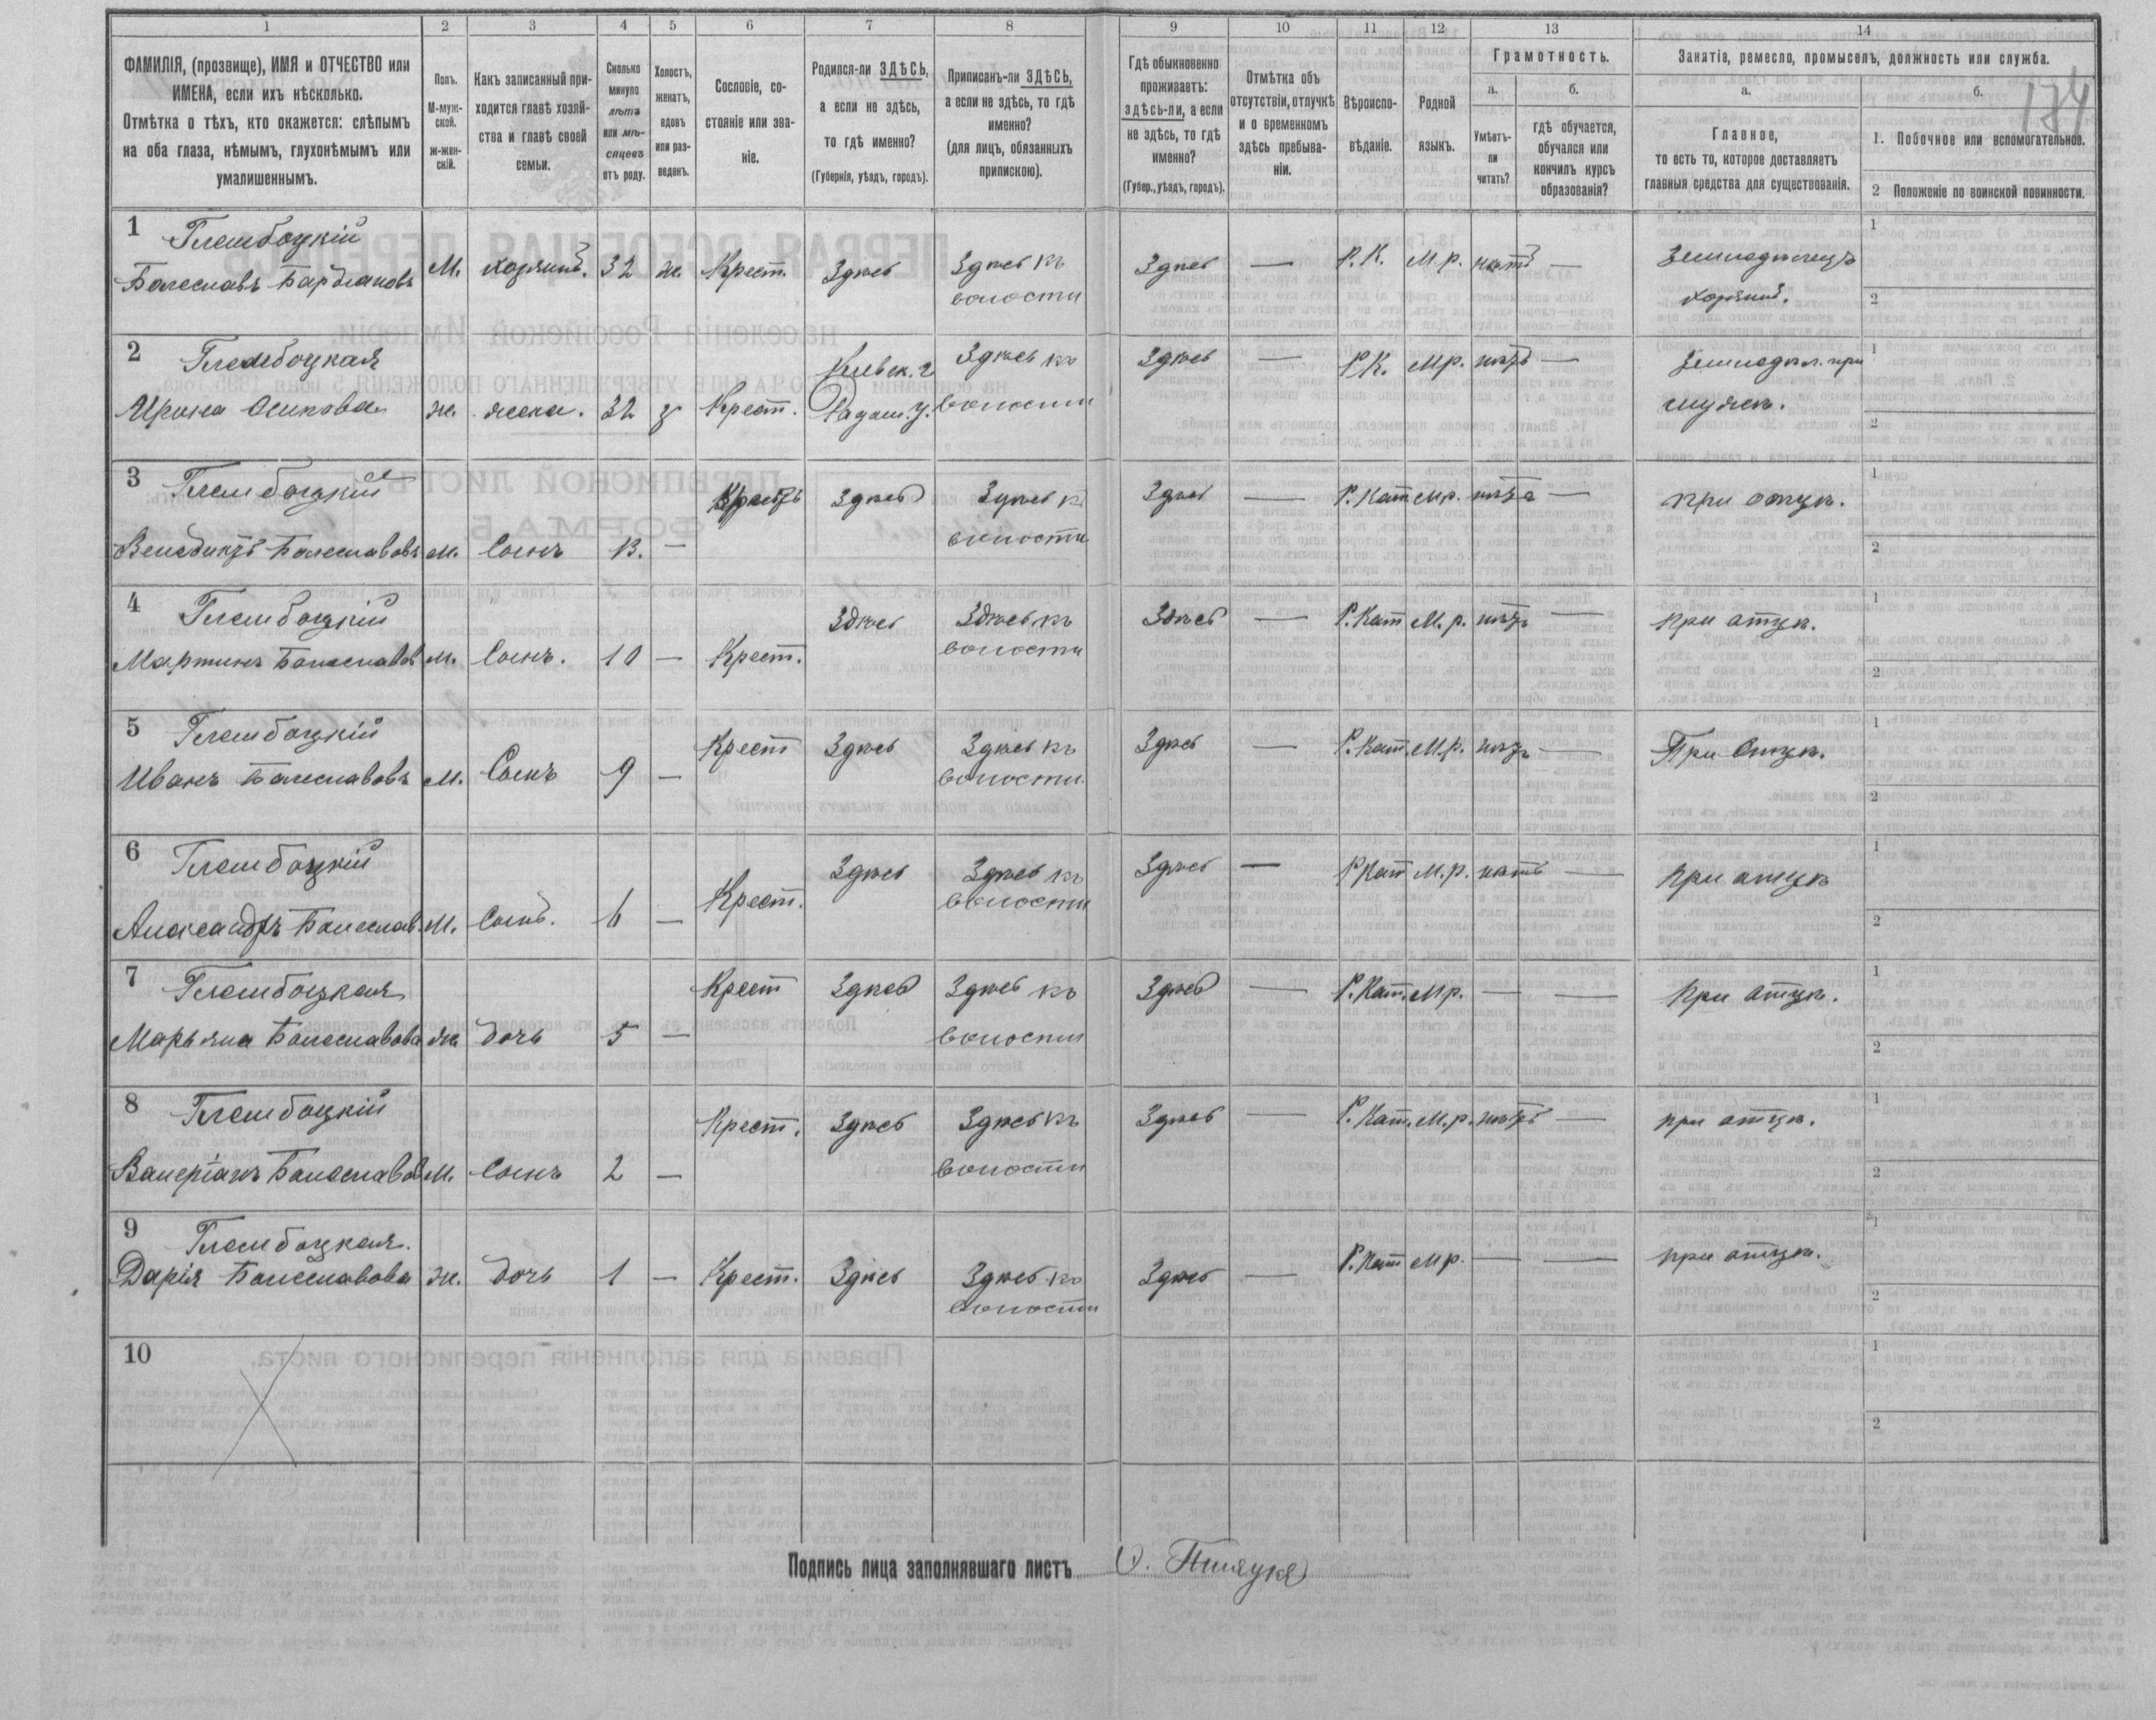 1 2 3 4 5 6 7 8 9 10 11 12 13 14
ФАМИЛІЯ, (прозвище), ИМЯ и ОТЧЕСТВО или ИМЕНА, если ихъ нѣсколько.
Отмѣтка о тѣхъ, кто окажется: слѣпымъ на оба глаза, нѣмымъ, глухонѣмымъ или умалишеннымъ.
Полъ. М-мужской. ж-женскій.
Какъ записанный приходится главѣ хозяйства и главѣ своей семьи.
Сколько минуло лѣтъ или мѣсяцевъ отъ роду.
Холостъ, женатъ, вдовъ или разведенъ.
Сословіе, состояніе или званіе.
Родился-ли ЗДѢСЬ, а если не здѣсь, то гдѣ именно?
(Губернія, уѣздъ, городъ).
Приписанъ-ли ЗДѢСЬ, а если не здѣсь, то гдѣ именно?
(для лицъ, обязанныхъ припискою).
Гдѣ обыкновенно проживаетъ: здѣсь-ли, а если не здѣсь, то гдѣ именно?
(Губер., уѣздъ, городъ).
Отмѣтка объ отсутствіи, отлучкѣ и о временномъ здѣсь пребываніи.
Вѣроисповѣданіе.
Родной языкъ.
Грамотность.
а. Умѣетъ-ли читать?
б. гдѣ обучается, обучался или кончилъ курсъ образованія?
Занятія, ремесло, промыселъ, должность или служба.
а. Главное, то есть то, которое доставляетъ главныя средства для существованія.
б. 1. Побочное или вспомогательное.
2 Положеніе по воинской повинности.
174
1 Глембоцкій Болеславъ М. хозяинъ. 32 ж. Крест. Здѣсь Здѣсь къ волости Здѣсь — Р.К. М р. нѣтъ — Земледѣлецъ хозяинъ. 1 2
2 Глембоцкая Ирина Осипова ж. жена. 32 з Крест. Кіевск. г Радом. у. Здѣсь къ волости Здѣсь — Р.К. Мр. нѣтъ — Земледѣл. при мужѣ. 1 2
3 Глембоцкій Венедиктъ Болеславовъ м. Сынъ 13. — Здѣсь Здѣсь къ волости Здѣсь — Р. Кат М р. — при отцѣ. 1 2
4 Глембоцкій Мартинъ Болеславов м. Сынъ. 10 — Крест. Здѣсь Здѣсь къ волости Здѣсь — Р. Кат М. р. нѣтъ — при отцѣ. 1 2
5 Глембоцкій Иванъ Болеславовъ м. Сынъ 9 — Крест Здѣсь Здѣсь къ волости. Здѣсь — Р. Кат. М.р. нѣтъ — При Отцѣ. 1 2
6 Глембоцкій Александръ Болеслав. М. Сынъ. 6 — Крест. Здѣсь Здѣсь къ волости Здѣсь — Р Кат М. р. нѣтъ — при отцѣ 1 2
7 Глембоцкая Марьяна Болеславова ж. дочь 5 — Крест Здѣсь Здѣсь къ волости Здѣсь — Р. Кат. М р. — — при отцѣ. 1 2
8 Глембоцкій Валеріанъ Болеславов М. Сынъ 2 — Крест. Здѣсь Здѣсь къ волости Здѣсь — Р. Кат. М. р. нѣтъ — при отцѣ. 1 2
9 Глембоцкая. Дарія Болеславова ж. дочь 1 — Крест. Здѣсь Здѣсь къ волости Здѣсь — Р. Кат М р. — — при отцѣ. 1 2
10 1 2
Подпись лица заполнявшаго листъ